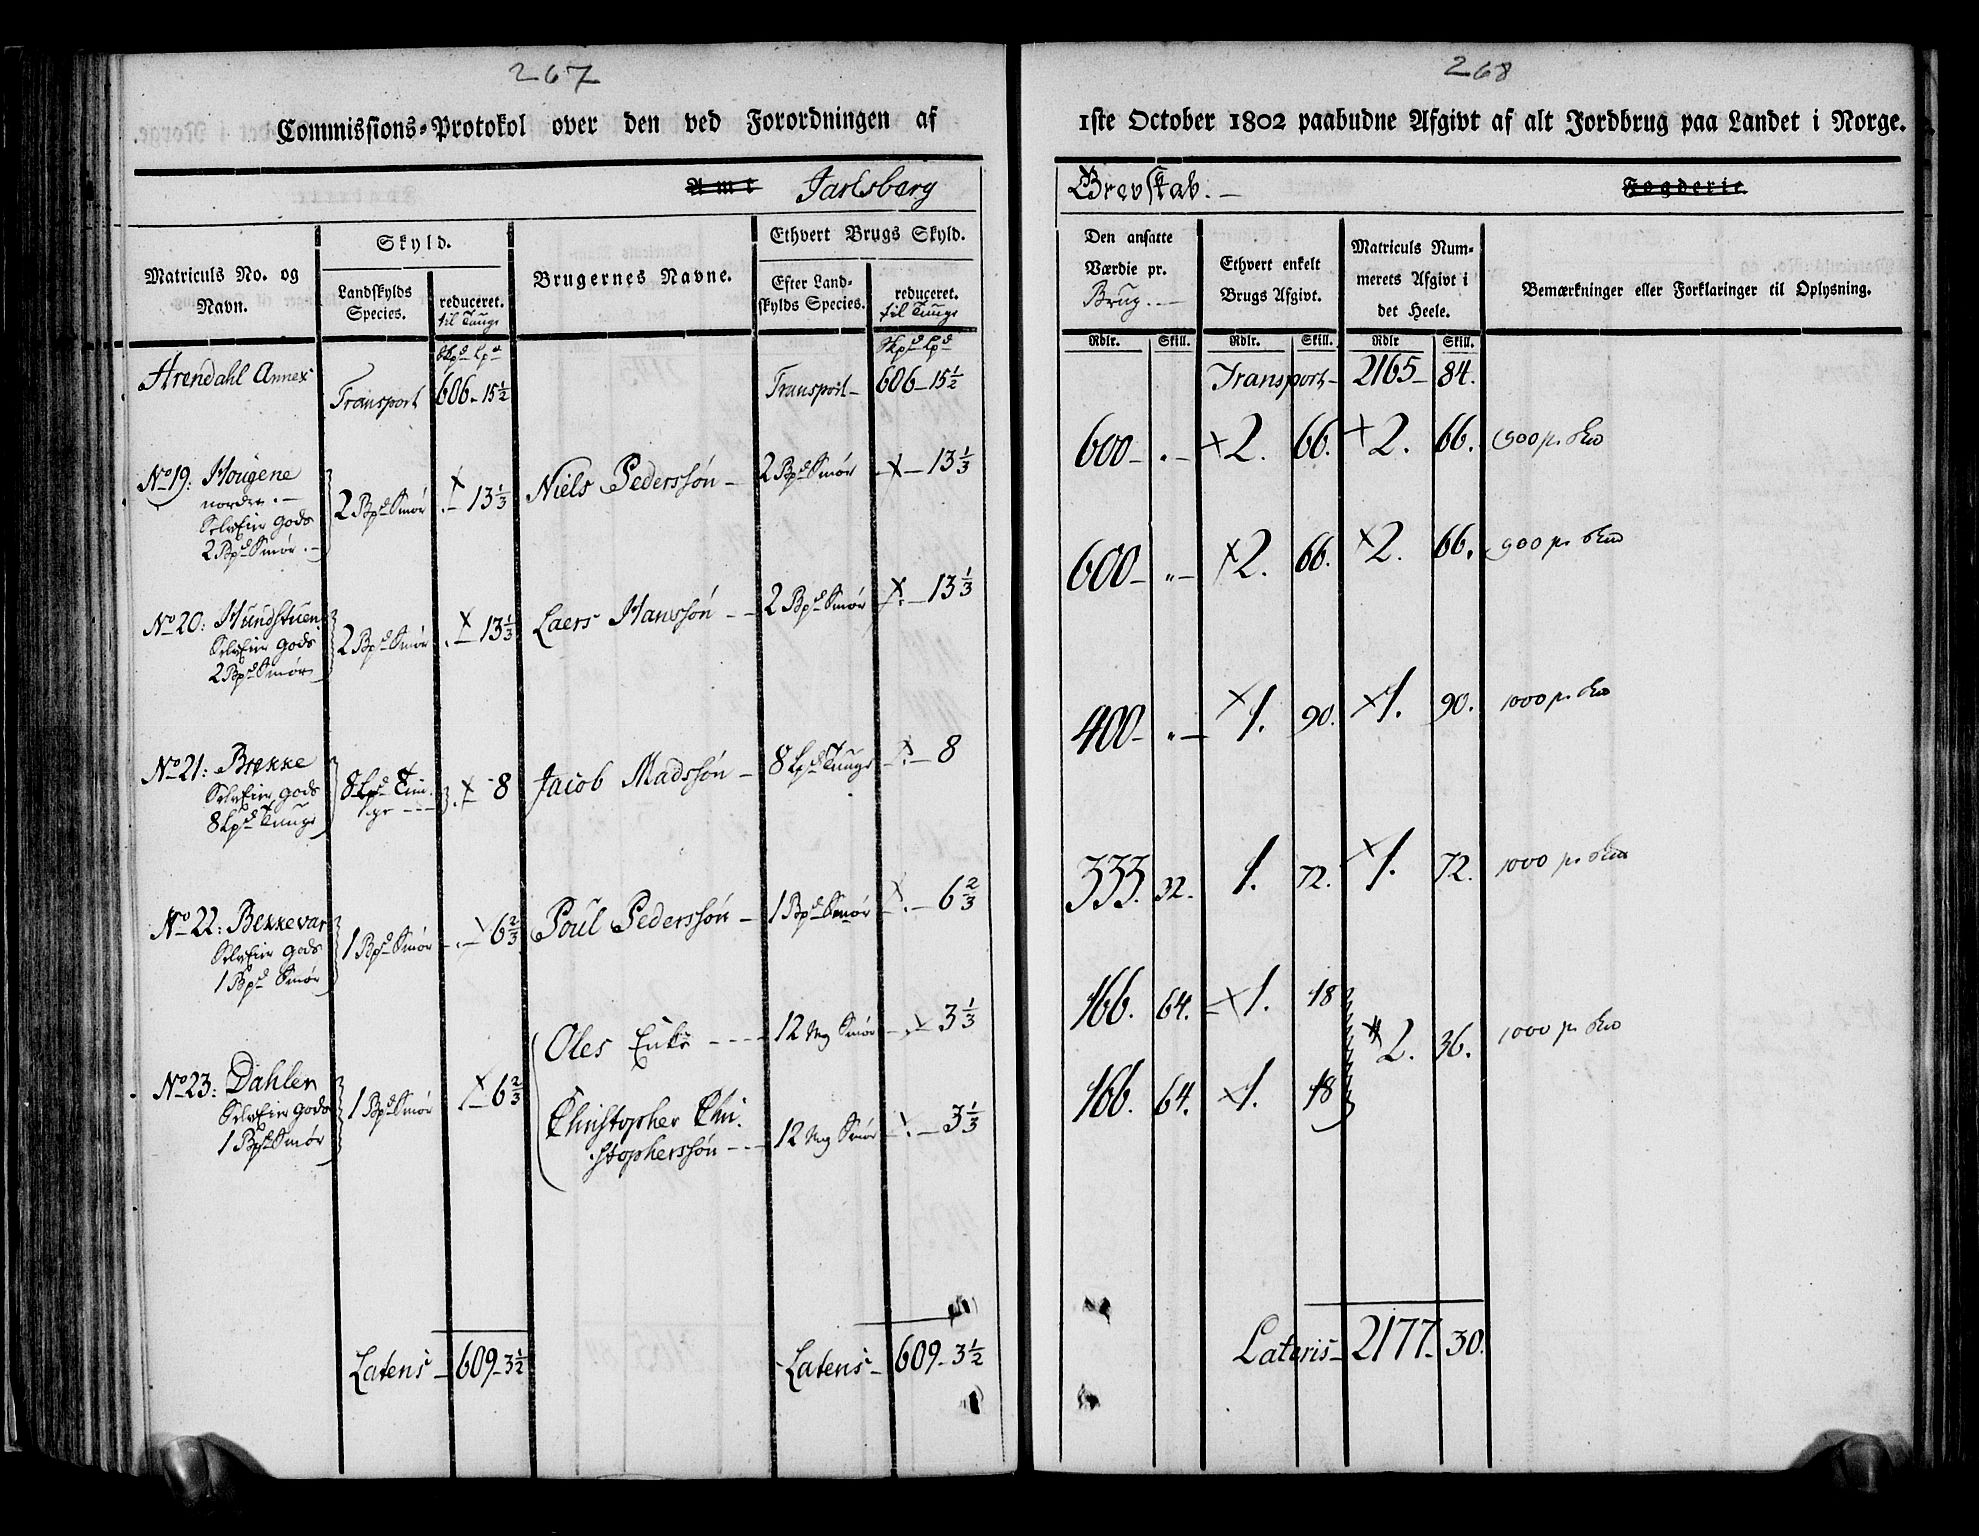 267
Commissions-Protokol over den ved Forordningen af
Amt Jarlsberg
Matriculs No. og Navn.
Skyld.
Landskylds Species.
reduceret. til Tunge
Brugernes Navne.
Ethvert Brugs Skyld.
Efter Landskylds Species.
reduceret. til Tunge
Skpd Lpd
Skpd Lpd
Arendahl Annex
Transport 606 - 15 1/2
Transport - 606 - 15 1/2
No 19: Hougene
nordre . -
SelvEier Gods
2 Bpd Smør . -
2 Bpd Smør
. - 13 1/3
Niels Pederssøn -
2 Bpd Smør
- 13 1/3
No 20: Hundstuen
SelvEier Gods
2 Bpd Smør
2 Bpd Smør
. - 13 1/3
Laers Hanssøn - -
2 Bpd Smør
. - 13 1/3
No 21: Brekke
SelvEier Gods
8 Lpd Tunge
8 Lpd Tun-
ge - - -
. - 8
Jacob Madssøn -
8 Lpd Tunge
- . - 8
No 22: Bekkevar
SelvEier Gods
1 Bpd Smør
1 Bpd Smør
- . - 6 2/3
Poul Pederssøn -
1 Bpd Smør
- . - 6 2/3
No 23: Dahlen
SelvEier Gods
1 Bpd Smør
1 Bpd Smør
- 6 2/3
Oles Enke - - - -
12 Mg Smør
- . - 3 1/3
Christopher Chri-
stopherssøn - - -
12 Mg Smør
- . - 3 1/3
Latens - 609 - 3 1/2
Latens - 609 - 3 1/2
268
1ste October 1802 paabudne Afgivt af alt Jordbrug paa Landet i Norge.
Grevskab. -
Fogderie
Den ansatte Værdie pr. Brug. . -
Ethvert enkelt Brugs Afgivt.
Matriculs Nummerets Afgivt i det Heele.
Bemærkninger eller Forklaringer til Oplysning.
Rdlr. Skill. Rdlr. Skill. Rdlr Skill.
Transport - 2165 - 84.
600 - . - × 2. 66. × 2. 66. 900 pr.
600 - " - × 2. 66. × 2. 66. 900 pr.
400 - " - × 1. 90. × 1. 90. 1000 pr.
333. 32. 1. 72. × 1. 72. 1000 pr.
166. 64. - × 1. 18
2. 36. 1000 pr.
166. 64. × 1. 18
Lateris - 2177 - 30.